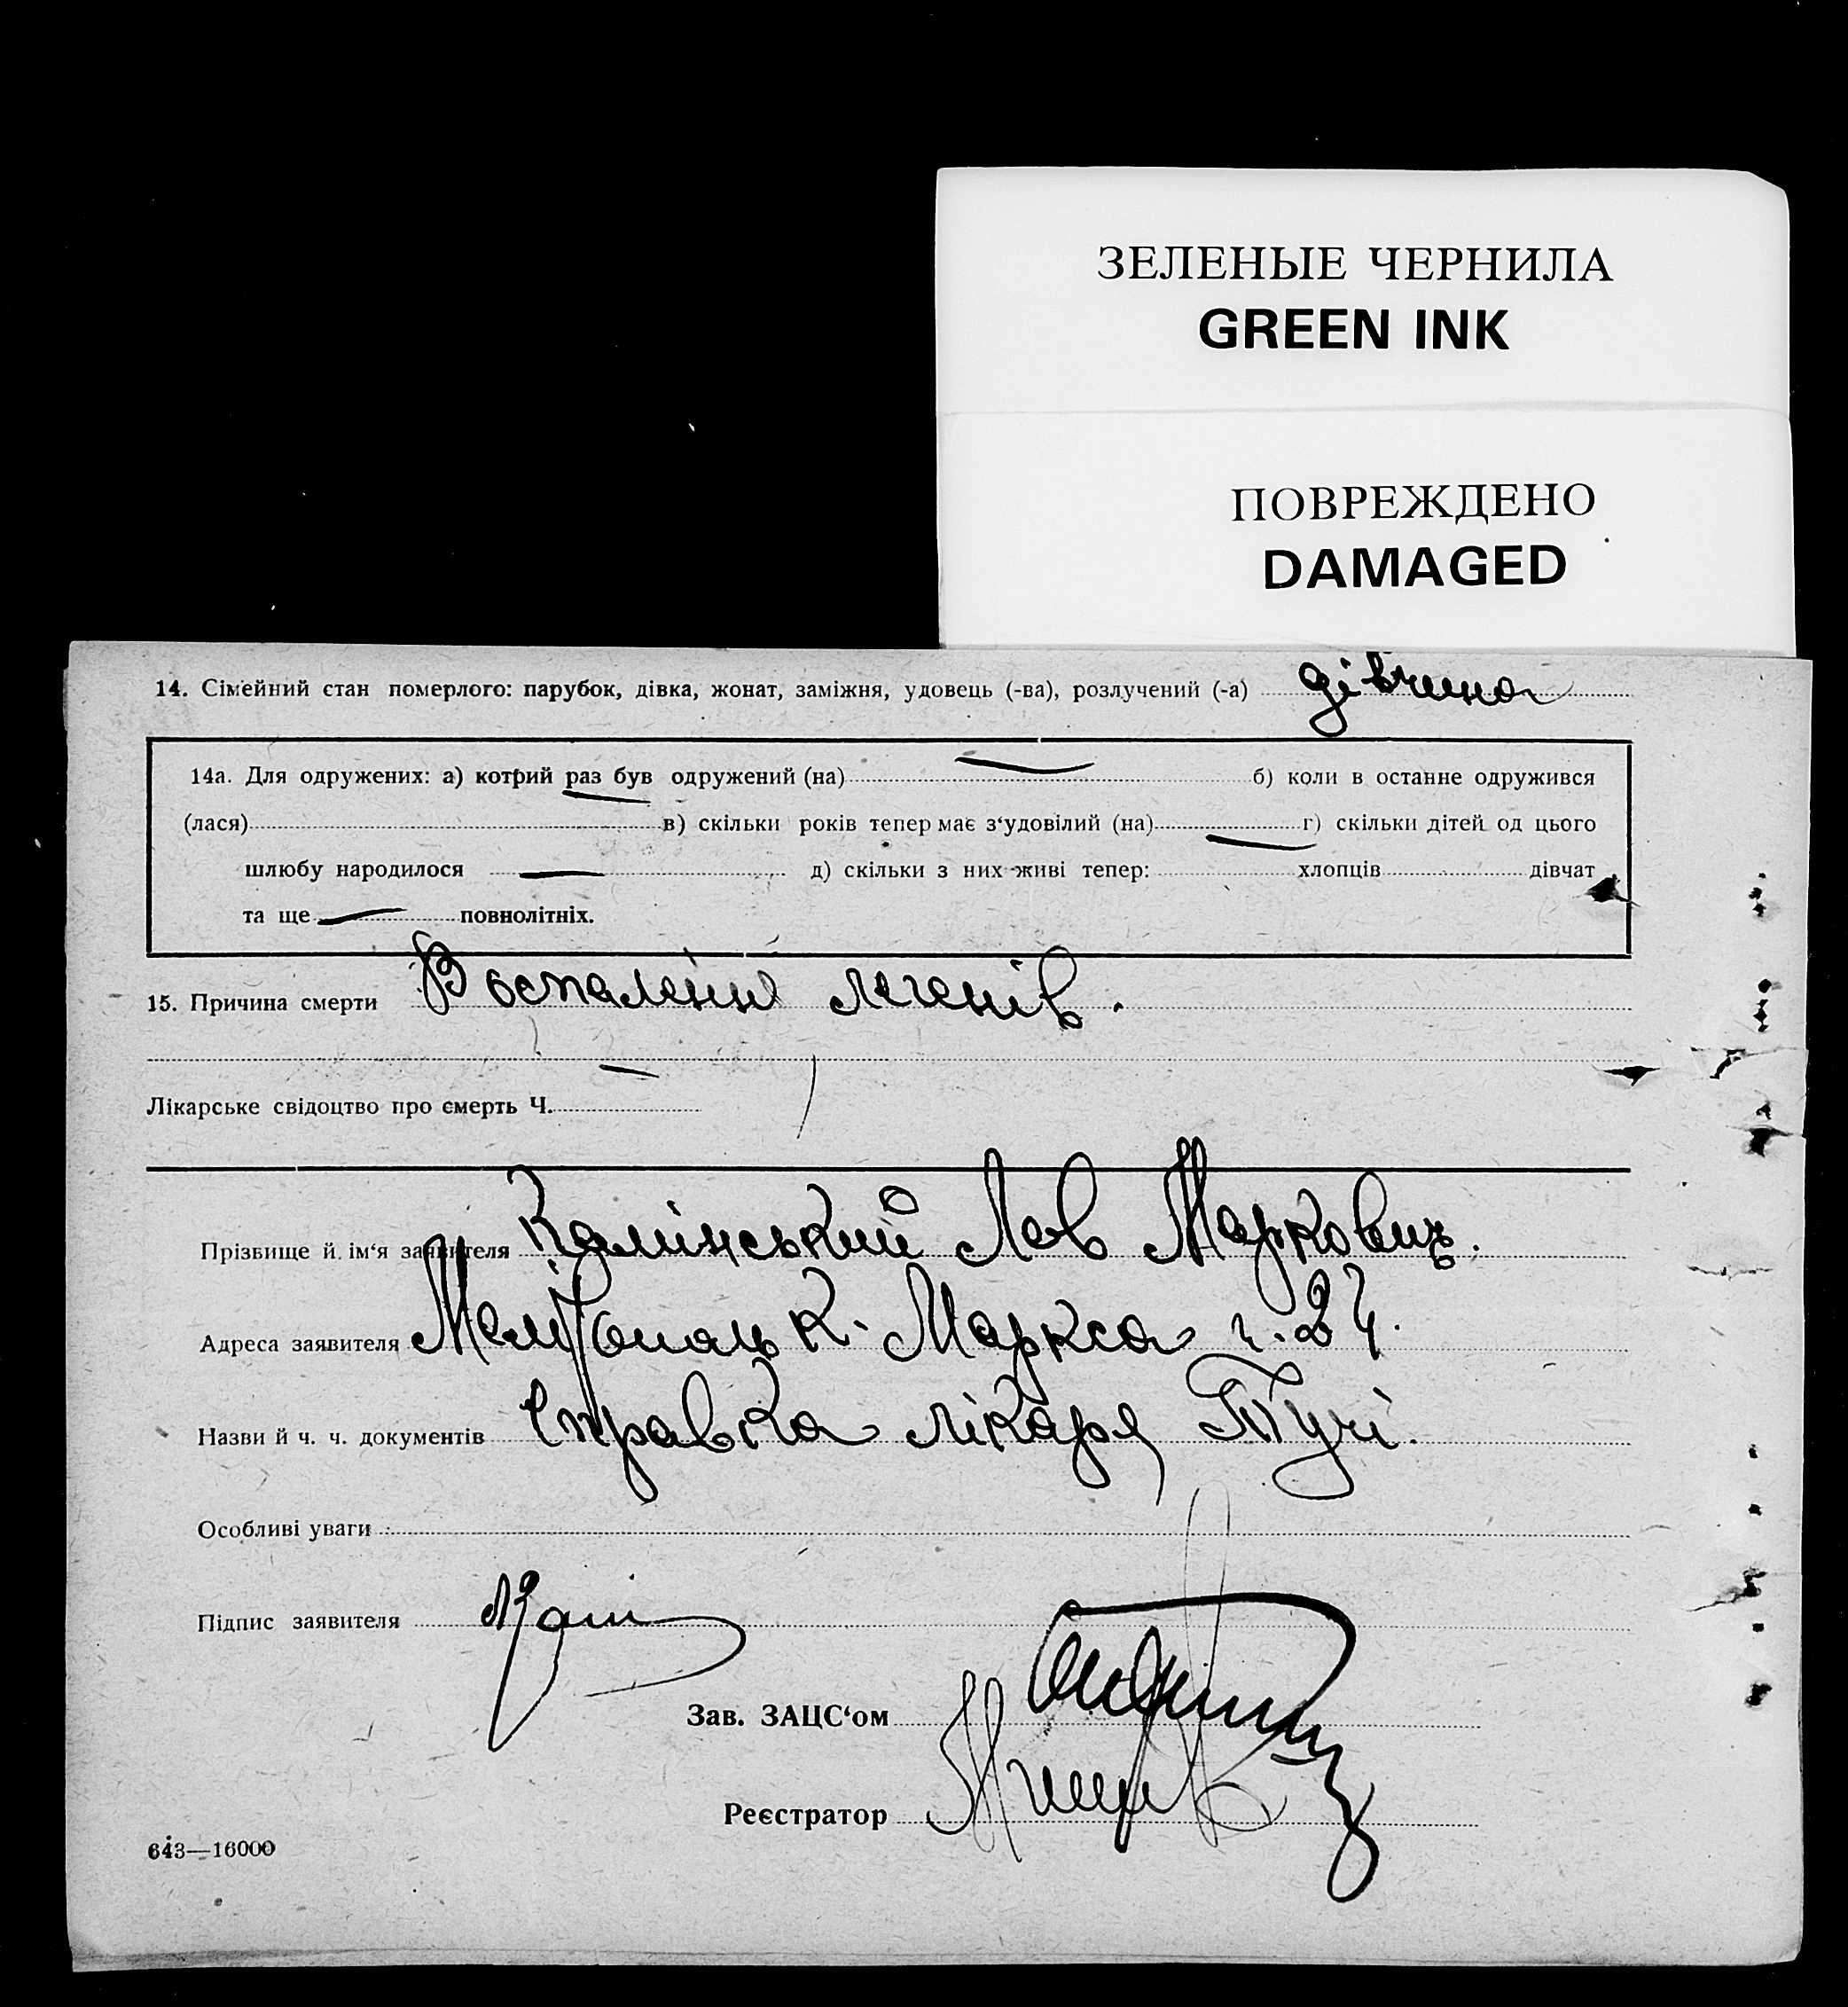 ЗЕЛЕНЫЕ ЧЕРНИЛА
GREEN INK
ПОВРЕЖДЕНО
DAMAGED
14. Сімейний стан померлого: парубок, дівка, жонат, заміжня, удовець (-ва), розлучений (-а) дівчина
14а. Для одружених: а) котрий раз був одружений (на) — б) коли в останне одружився
(лася) — в) скільки років тепер має з‘удовілий (на) — г) скільки дітей од цього
шлюбу народилося — д) скільки з них живі тепер: хлопців дівчат
та ще — повнолітніх.
15. Причина смерти Воспаления легенів.
Лікарське свідоцтво про смерть Ч. —
Прізвище й ім‘я заявителя Камінський Лев Маркович.
Адреса заявителя Мелітополь К. Маркса ч. 24.
Назви й ч. ч. документів Справка лікаря Тучі.
Особливі уваги
Підпис заявителя
Зав. ЗАЦС‘ом
Реєстратор
643—16000